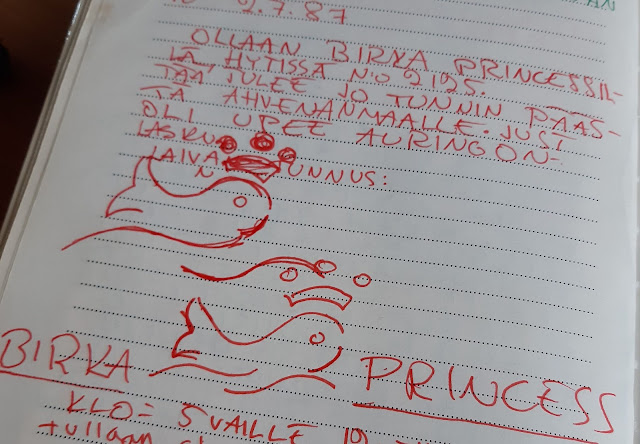 2.7.87
OLLAAN BIRKA PRINCESSIL-
LÄ HYTISSÄ NO 2125.
TÄÄ TULEE JO TUNNIN PÄÄS-
TÄ AHVENANMAALLE. JUST
OLI UPEE AURINGON-
LASKU.
LAIVAN TUNNUS:
BIRKA PRINCESS
KLO = 5 VAILLE 10
tullaan